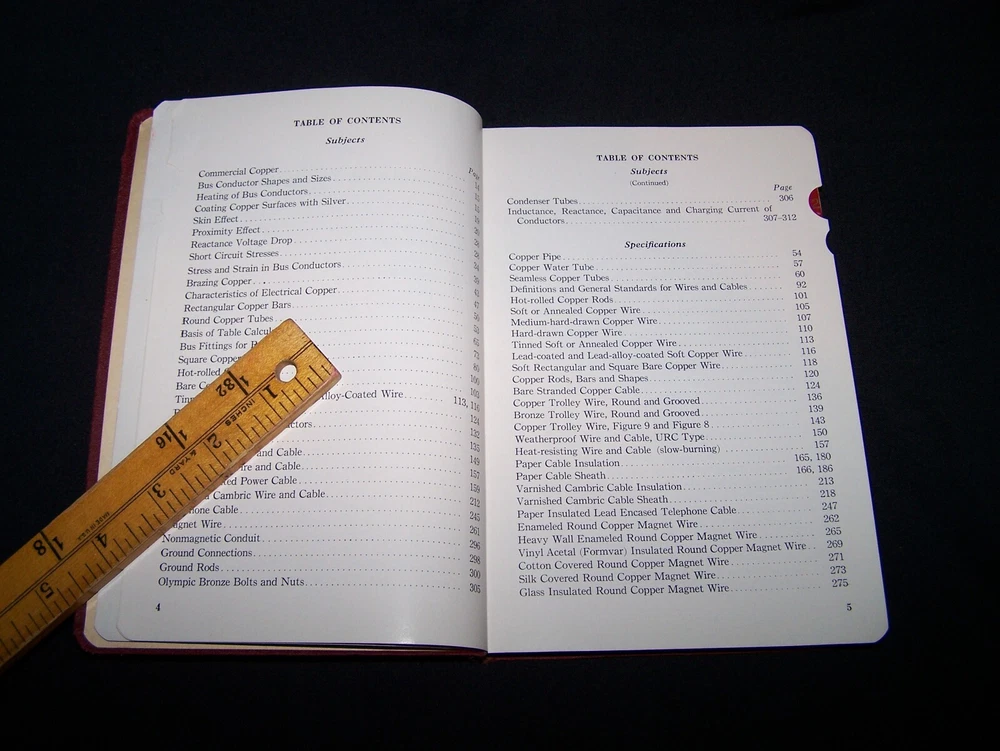 TABLE OF CONTENTS
Subjects
Page
Commercial Copper
Bus Conductor Shapes and Sizes
Heating of Bus Conductors
Coating Copper Surfaces with Silver
Skin Effect
Proximity Effect
Reactance Voltage Drop
Short Circuit Stresses
Stress and Strain in Bus Conductors
Brazing Copper
Characteristics of Electrical Copper
Rectangular Copper Bars
Round Copper Tubes
Basis of Table Calcul
Bus Fittings for
Square Coppe
Hot-rolled
Bare C
Tin lloy-Coated Wire 113, 116
ctors
and Cable
re and Cable
ed Power Cable
Cambric Wire and Cable 212
hone Cable 245
agnet Wire 261
Nonmagnetic Conduit 296
Ground Connections 298
Ground Rods 300
Olympic Bronze Bolts and Nuts 305
4
TABLE OF CONTENTS
Subjects
(Continued)
Page
Condenser Tubes 306
Inductance, Reactance, Capacitance and Charging Current of
Conductors 307-312
Specifications
Copper Pipe 54
Copper Water Tube 57
Seamless Copper Tubes 60
Definitions and General Standards for Wires and Cables 92
Hot-rolled Copper Rods 101
Soft or Annealed Copper Wire 105
Medium-hard-drawn Copper Wire 107
Hard-drawn Copper Wire 110
Tinned Soft or Annealed Copper Wire 113
Lead-coated and Lead-alloy-coated Soft Copper Wire 116
Soft Rectangular and Square Bare Copper Wire 118
Copper Rods, Bars and Shapes 120
Bare Stranded Copper Cable 124
Copper Trolley Wire, Round and Grooved 136
Bronze Trolley Wire, Round and Grooved 139
Copper Trolley Wire, Figure 9 and Figure 8 143
Weatherproof Wire and Cable, URC Type 150
Heat-resisting Wire and Cable (slow-burning) 157
Paper Cable Insulation 165, 180
Paper Cable Sheath 166, 186
Varnished Cambric Cable Insulation 213
Varnished Cambric Cable Sheath 218
Paper Insulated Lead Encased Telephone Cable 247
Enameled Round Copper Magnet Wire 262
Heavy Wall Enameled Round Copper Magnet Wire 265
Vinyl Acetal (Formvar) Insulated Round Copper Magnet Wire 269
Cotton Covered Round Copper Magnet Wire 271
Silk Covered Round Copper Magnet Wire 273
Glass Insulated Round Copper Magnet Wire 275
5
1/32 1
INCHES
1/16 2
& YARD
3
1/8 4
5